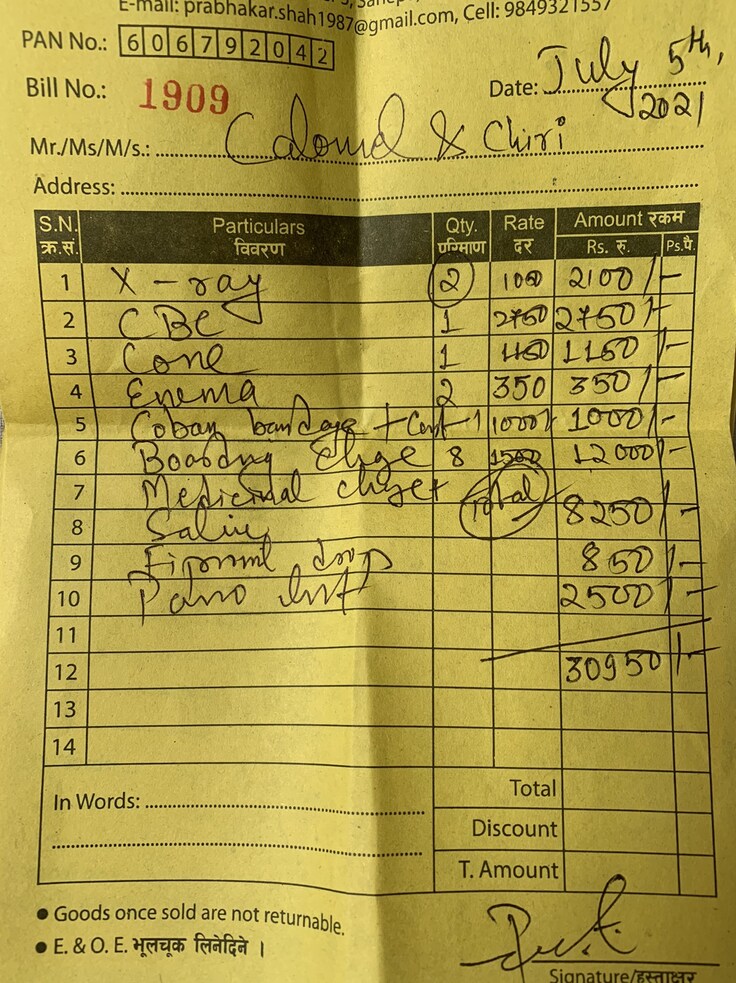 E-mail: prabhakar.shah1987@gmail.com, Cell: 9849321557
PAN No.: 606792042
Bill No.: 1909 Date: July 5th, 2021
Mr./Ms/M/s.: & Chiri
Address:
S.N. Particulars Qty. Rate Amount रकम
क्र.सं. विवरण परिमाण दर Rs. रु. Ps.पै.
1 X-ray 2 2100/-
2 CBC 1 2750 2750/-
3 Cone 1 1150/-
4 Enema 2 350 350/-
5 Coban bandage + 1000/- 1000/-
6 Boarding 8 1500 12000/-
7 Medicinal Total
8 8250/-
9 drop 850/-
10 2500/-
11
12 30950/-
13
14
In Words: Total
Discount
T. Amount
● Goods once sold are not returnable.
● E. & O. E. भूलचूक लिनेदिने ।
Signature/हस्ताक्षर